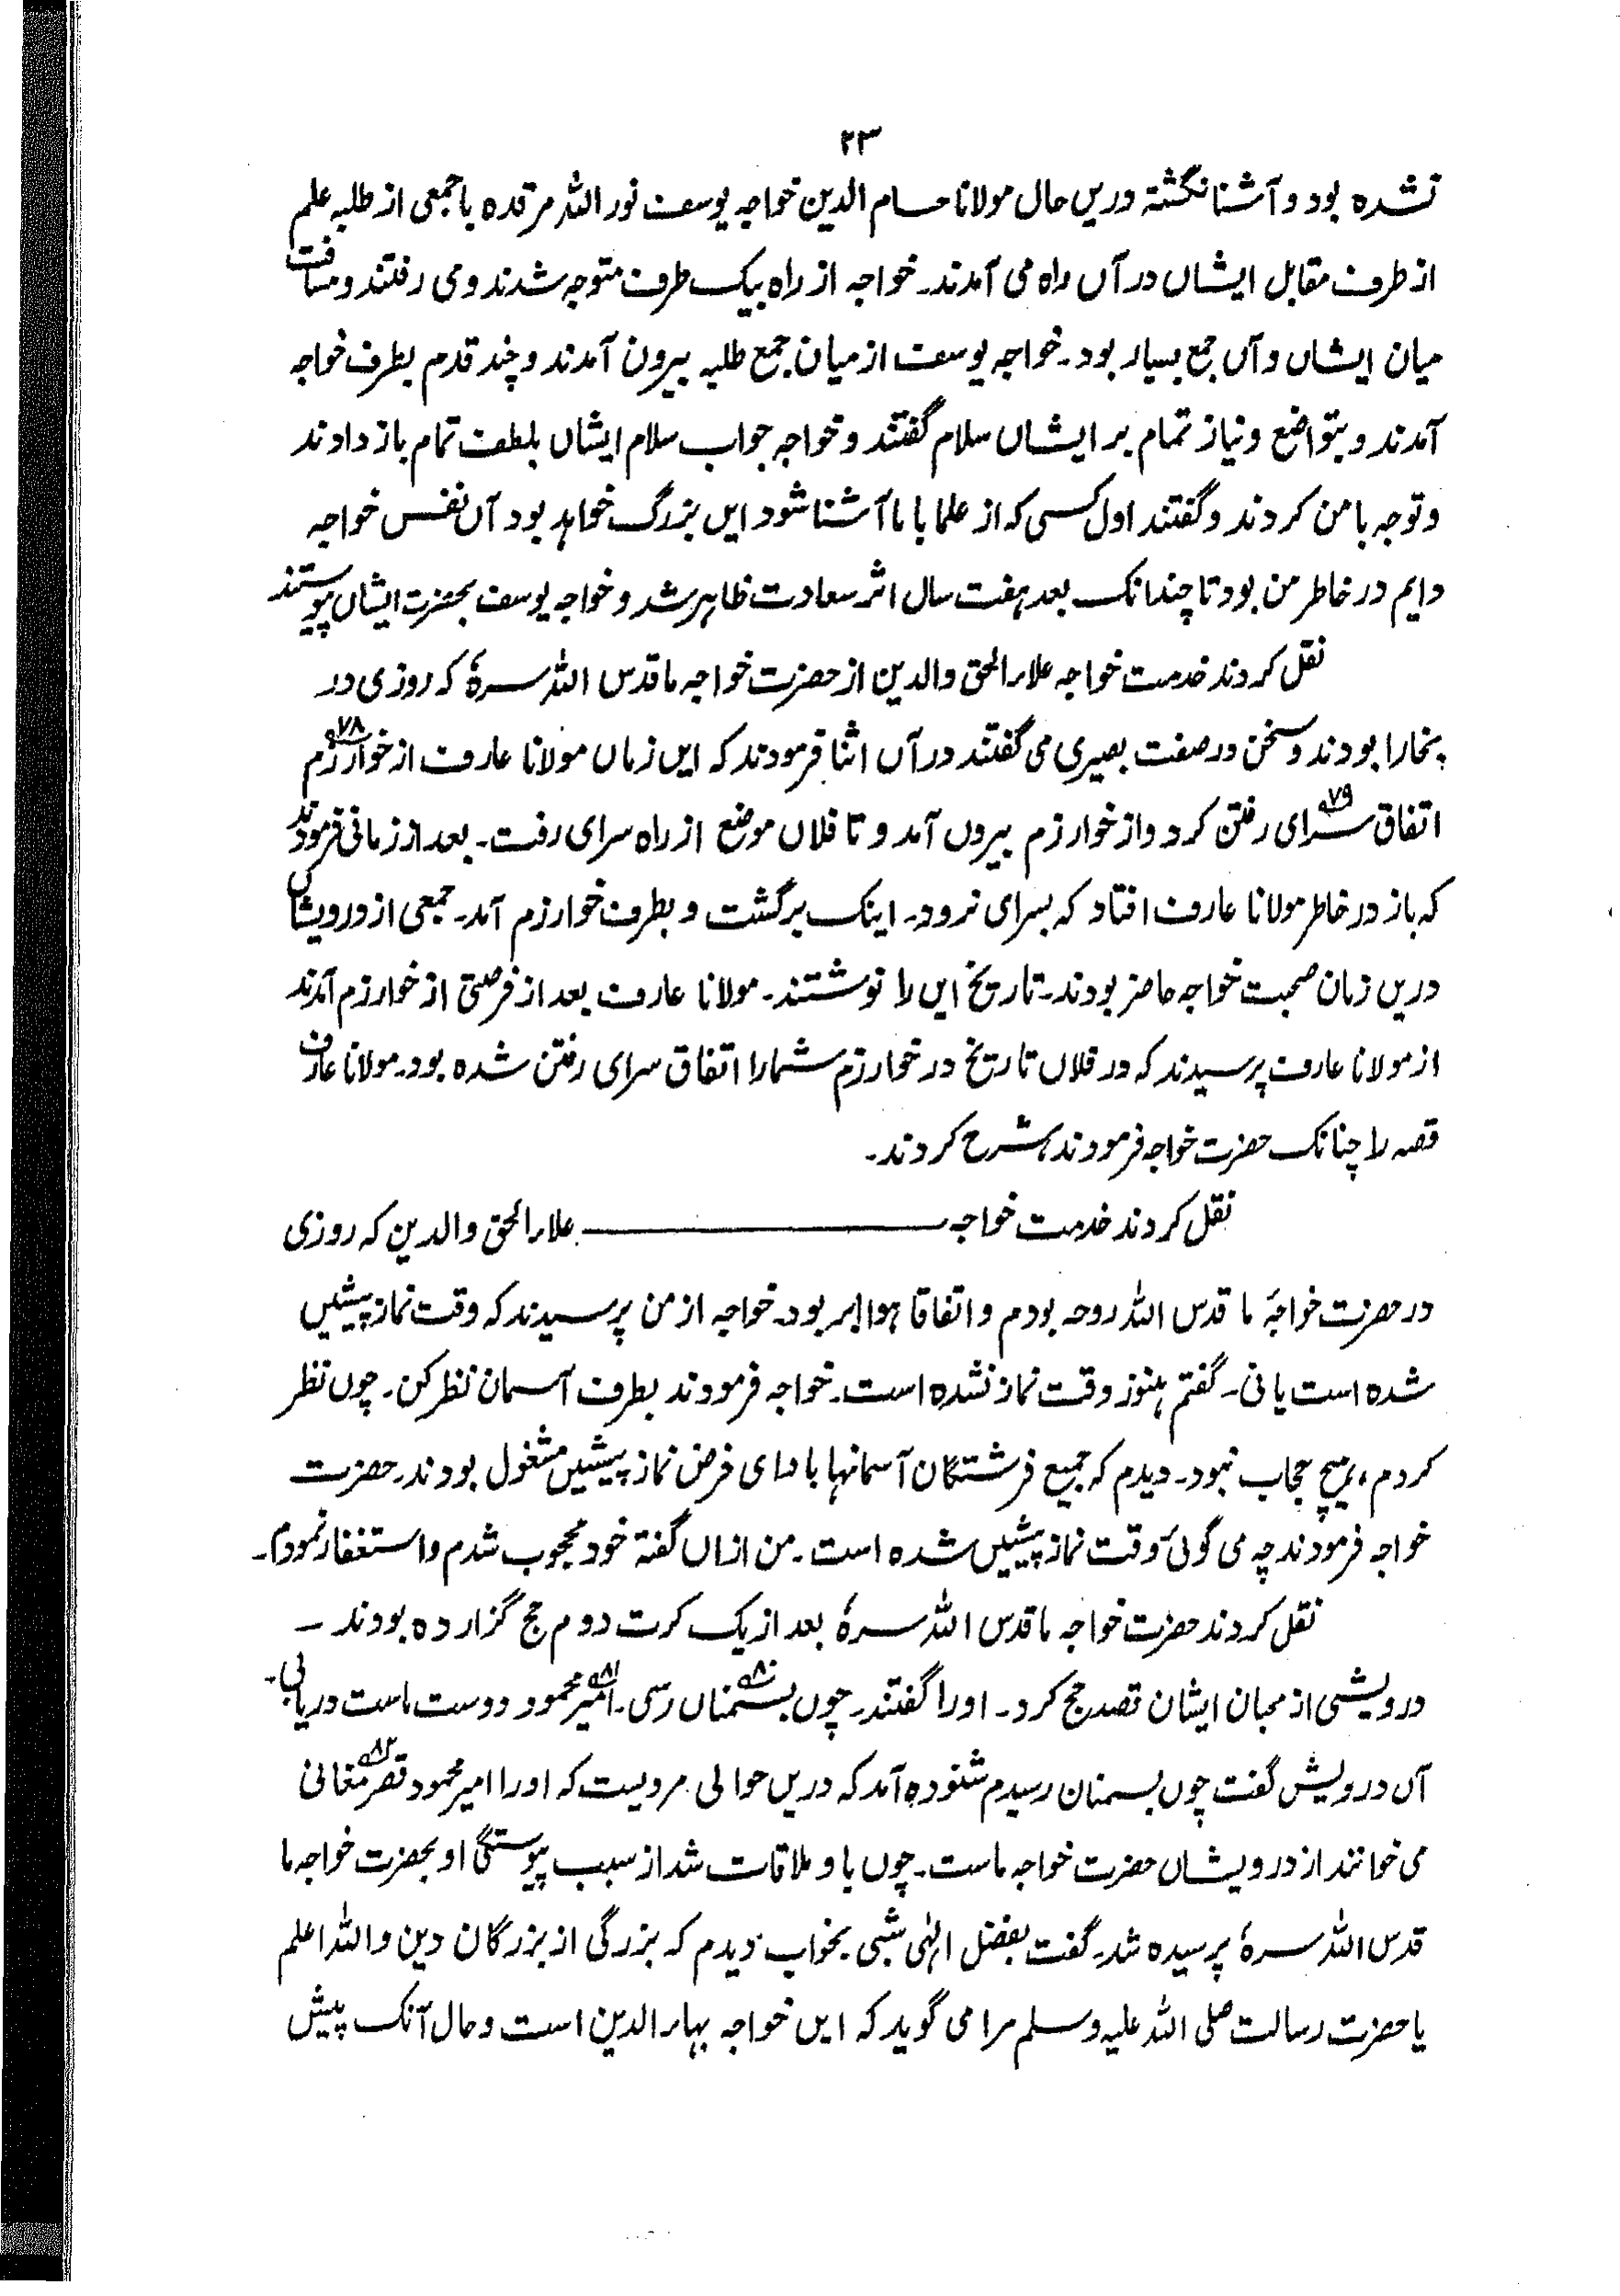 ۲۳
نشده بود و آشنا نگشتہ دریں حال مولانا حسام الدین خواجہ یوسف نور اللہ مرقدہ با جمعی از طلبہ علم
از طرف مقابل ایشاں در آں راہ می آمدند۔ خواجہ از راہ بیک طرف متوجہ شدند و می رفتند و مسافت
میان ایشاں و آں جمع بسیار بود۔ خواجہ یوسف از میان جمع طلبہ بیرون آمدند و چند قدم بطرف خواجہ
آمدند و بتواضع و نیاز تمام بر ایشاں سلام گفتند و خواجہ جواب سلام ایشاں بلطف تمام باز دادند
و توجہ با من کردند و گفتند اول کسی کہ از علما با ما آشنا شود ایں بزرگ خواہد بود آں نفس خواجہ
دایم در خاطر من بود تا چندانک بعد ہفت سال اثر سعادت ظاہر شد و خواجہ یوسف بحضرت ایشاں پیوستند
نقل کردند خدمت خواجہ علاء الحق والدین از حضرت خواجہ ما قدس اللہ سرہٗ کہ روزی در
بخارا بودند و سخن در صفت بصیری می گفتند در آں اثنا فرمودند کہ ایں زماں مولانا عارف از خوارزم ۷۸
اتفاق سرای ۷۹ رفتن کرد و از خوارزم بیروں آمد و تا فلاں موضع از راہ سرای رفت۔ بعد از زمانی فرمودند
کہ باز در خاطر مولانا عارف افتاد کہ بسرای نرود۔ اینک برگشت و بطرف خوارزم آمد۔ جمعی از درویشاں
دریں زمان صحبت خواجہ حاضر بودند۔ تاریخ ایں را نوشتند۔ مولانا عارف بعد از فرصتی از خوارزم آمدند
از مولانا عارف پرسیدند کہ در فلاں تاریخ در خوارزم شمارا اتفاق سرای رفتن شدہ بود۔ مولانا عارف
قصہ را چنانک حضرت خواجہ فرمودند، شرح کردند۔
نقل کردند خدمت خواجہ ــــــــــــــــ علاء الحق والدین کہ روزی
در حضرت خواجۂ ما قدس اللہ روحہ بودم و اتفاقا ہوا ابر بود۔ خواجہ از من پرسیدند کہ وقت نماز پیشیں
شدہ است یا نی۔ گفتم ہنوز وقت نماز نشدہ است۔ خواجہ فرمودند بطرف آسمان نظر کن۔ چوں نظر
کردم، ہیچ حجاب نبود۔ دیدم کہ جمیع فرشتگان آسمانہا بادای فرض نماز پیشیں مشغول بودند۔ حضرت
خواجہ فرمودند چہ می گوئی وقت نماز پیشیں شدہ است۔ من ازاں گفتۂ خود محجوب شدم و استغفار نمودم۔
نقل کردند حضرت خواجہ ما قدس اللہ سرہٗ بعد از یک کرت دوم حج گزاردہ بودند ـ
درویشی از محبان ایشان قصد حج کرد۔ اورا گفتند۔ چوں بسمناں ۸۰ رسی۔ امیر ۸۱ محمود دوست ماست دریابی۔
آں درویش گفت چوں بسمنان رسیدم شنودہ آمد کہ دریں حوالی مردیست کہ اورا امیر محمود قصر مغانی ۸۲
می خوانند از درویشاں حضرت خواجہ ماست۔ چوں با و ملاقات شد از سبب پیوستگی او بحضرت خواجہ ما
قدس اللہ سرہٗ پرسیدہ شد۔ گفت بفضل الٰہی شبی بخواب دیدم کہ بزرگی از بزرگان دین واللہ اعلم
یا حضرت رسالت صلی اللہ علیہ وسلم مرا می گوید کہ ایں خواجہ بہاء الدین است و حال آنک پیش